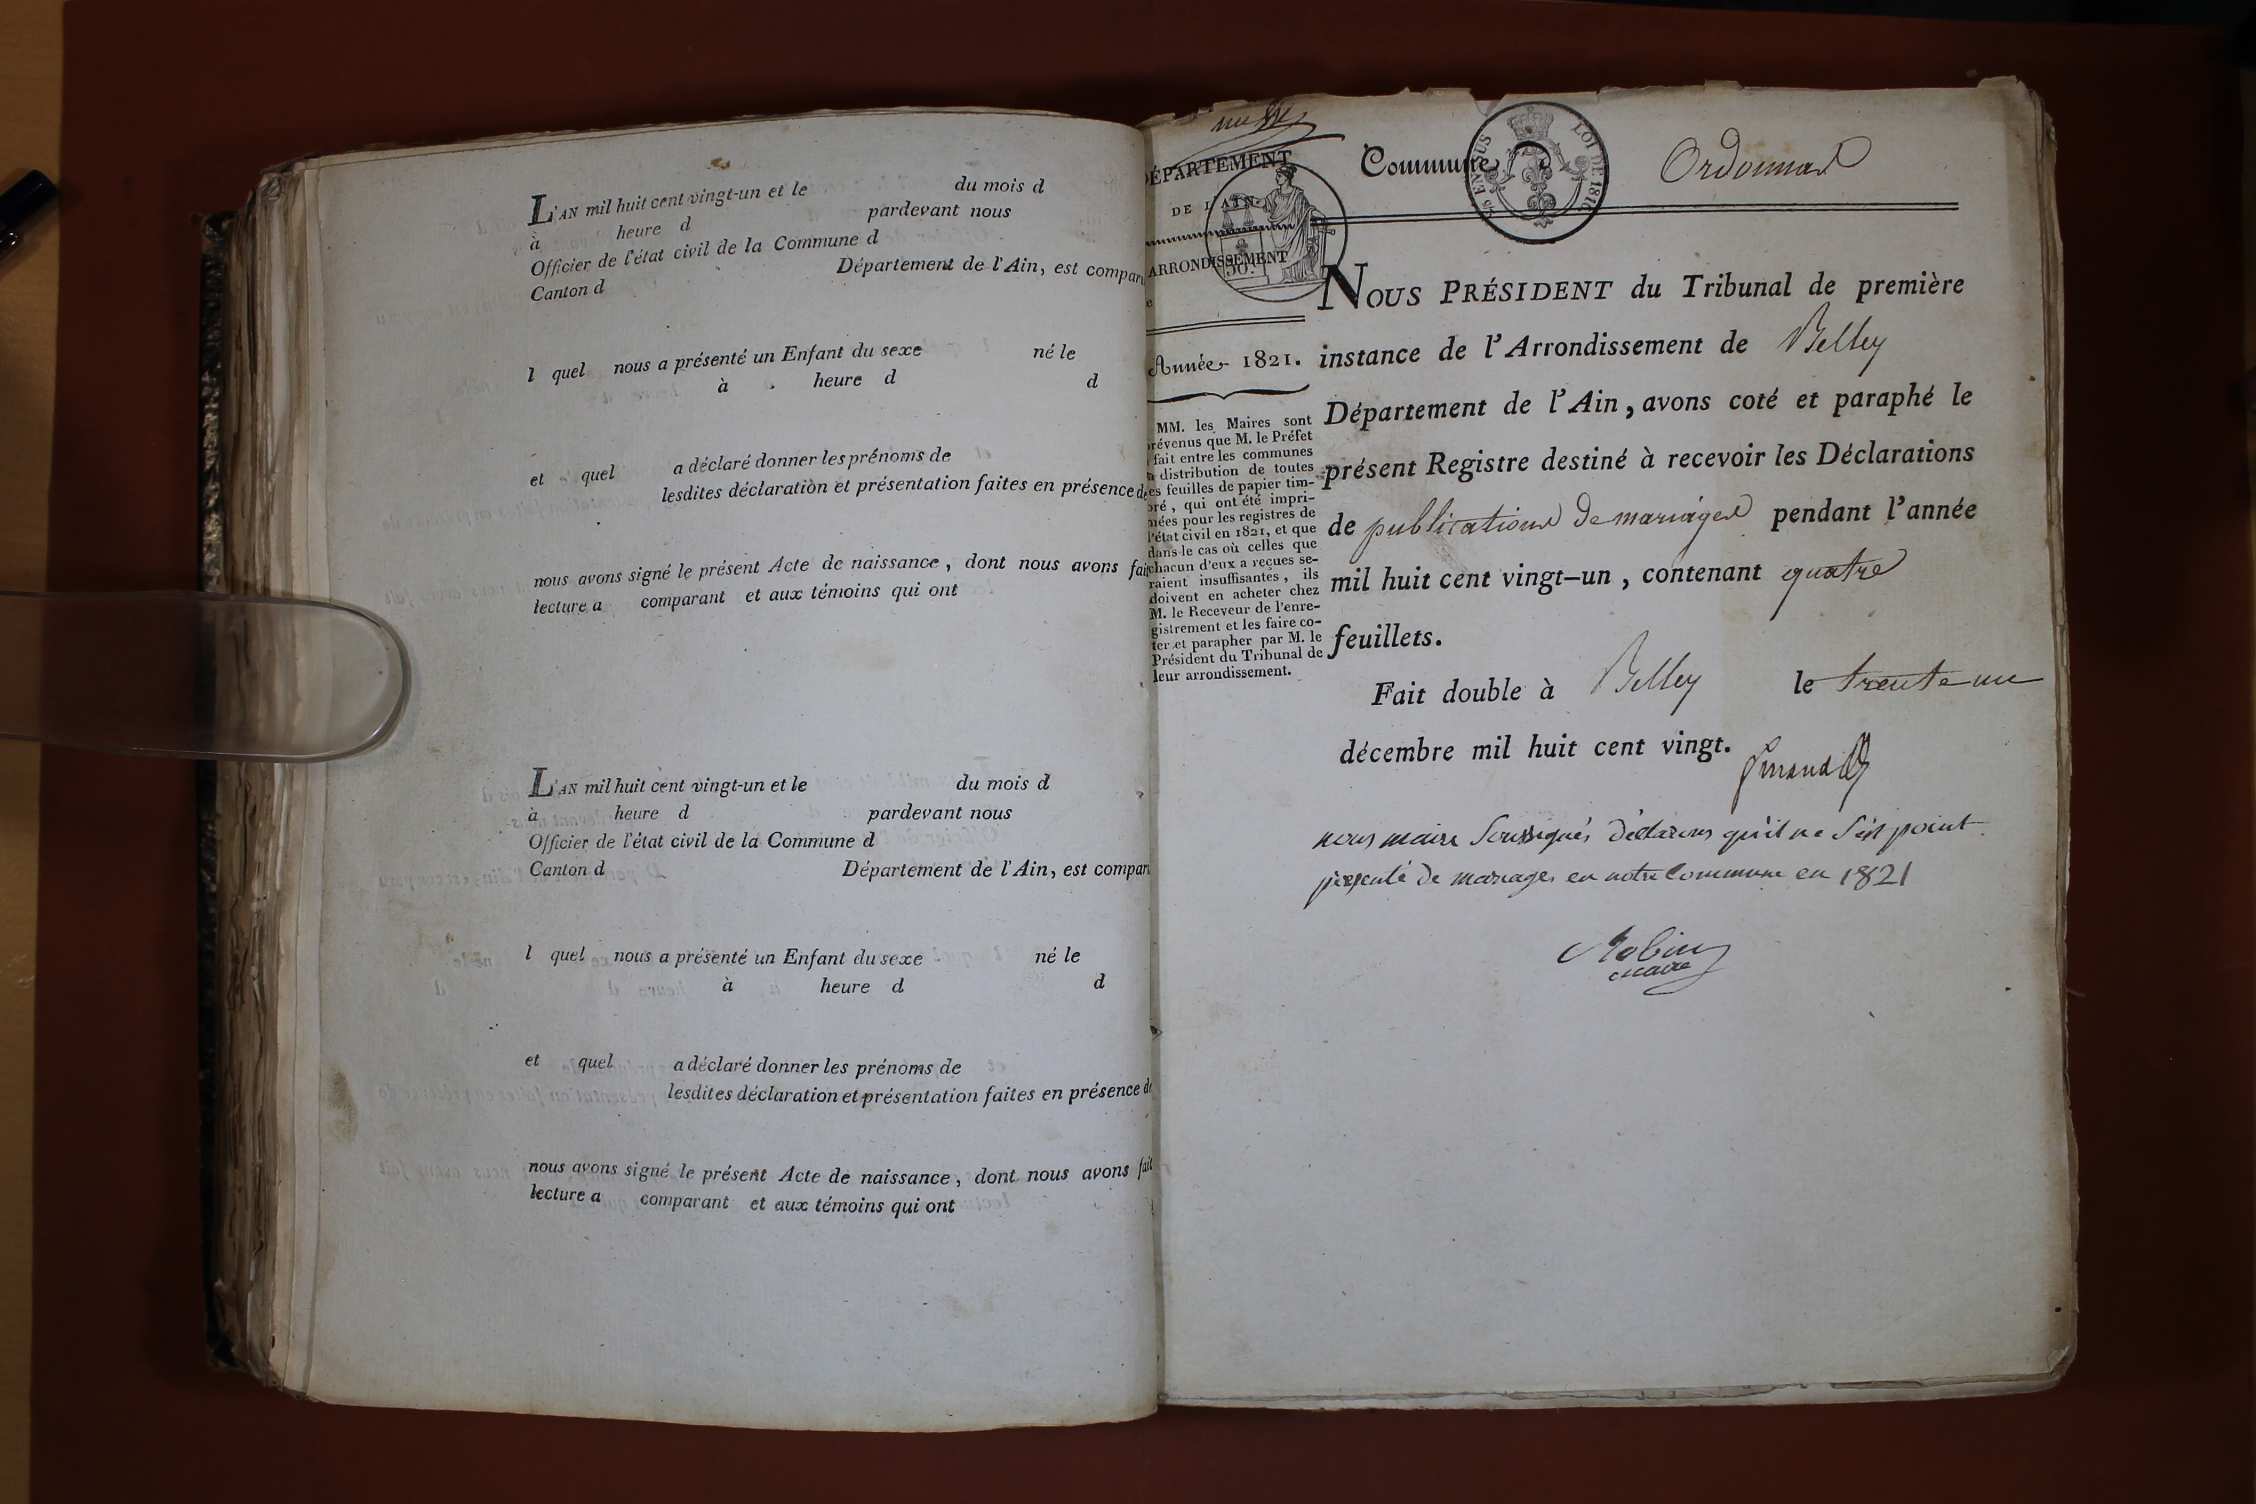 L'AN mil huit cent vingt-un et le du mois d
à heure d pardevant nous
Officier de l'état civil de la Commune d
Canton d Département de l'Ain, est compar
l quel nous a présenté un Enfant du sexe né le
à heure d d
et quel a déclaré donner les prénoms de
lesdites déclaration et présentation faites en présence de
nous avons signé le présent Acte de naissance, dont nous avons fait
lecture a comparant et aux témoins qui ont
L'AN mil huit cent vingt-un et le du mois d
à heure d pardevant nous
Officier de l'état civil de la Commune d
Canton d Département de l'Ain, est compar
l quel nous a présenté un Enfant du sexe né le
à heure d d
et quel a déclaré donner les prénoms de
lesdites déclaration et présentation faites en présence de
nous avons signé le présent Acte de naissance, dont nous avons fait
lecture a comparant et aux témoins qui ont
DÉPARTEMENT
DE L'AIN
ARRONDISSEMENT
Année 1821.
MM. les Maires sont
prévenus que M. le Préfet
a fait entre les communes
la distribution de toutes
les feuilles de papier tim-
bré, qui ont été impri-
mées pour les registres de
l'état civil en 1821, et que
dans le cas où celles que
chacun d'eux a reçues se-
raient insuffisantes, ils
doivent en acheter chez
M. le Receveur de l'enre-
gistrement et les faire co-
ter et parapher par M. le
Président du Tribunal de
leur arrondissement.
Commune Ordonnas
EN SUS LOI DE 1816
NOUS PRÉSIDENT du Tribunal de première
instance de l'Arrondissement de Belley
Département de l'Ain, avons coté et paraphé le
présent Registre destiné à recevoir les Déclarations
de publications de mariages pendant l'année
mil huit cent vingt-un, contenant quatre
feuillets.
Fait double à Belley le trente un
décembre mil huit cent vingt.
nous maire soussignés déclarons qu'il ne s'est point
présenté de mariages en notre commune en 1821
Robin
maire